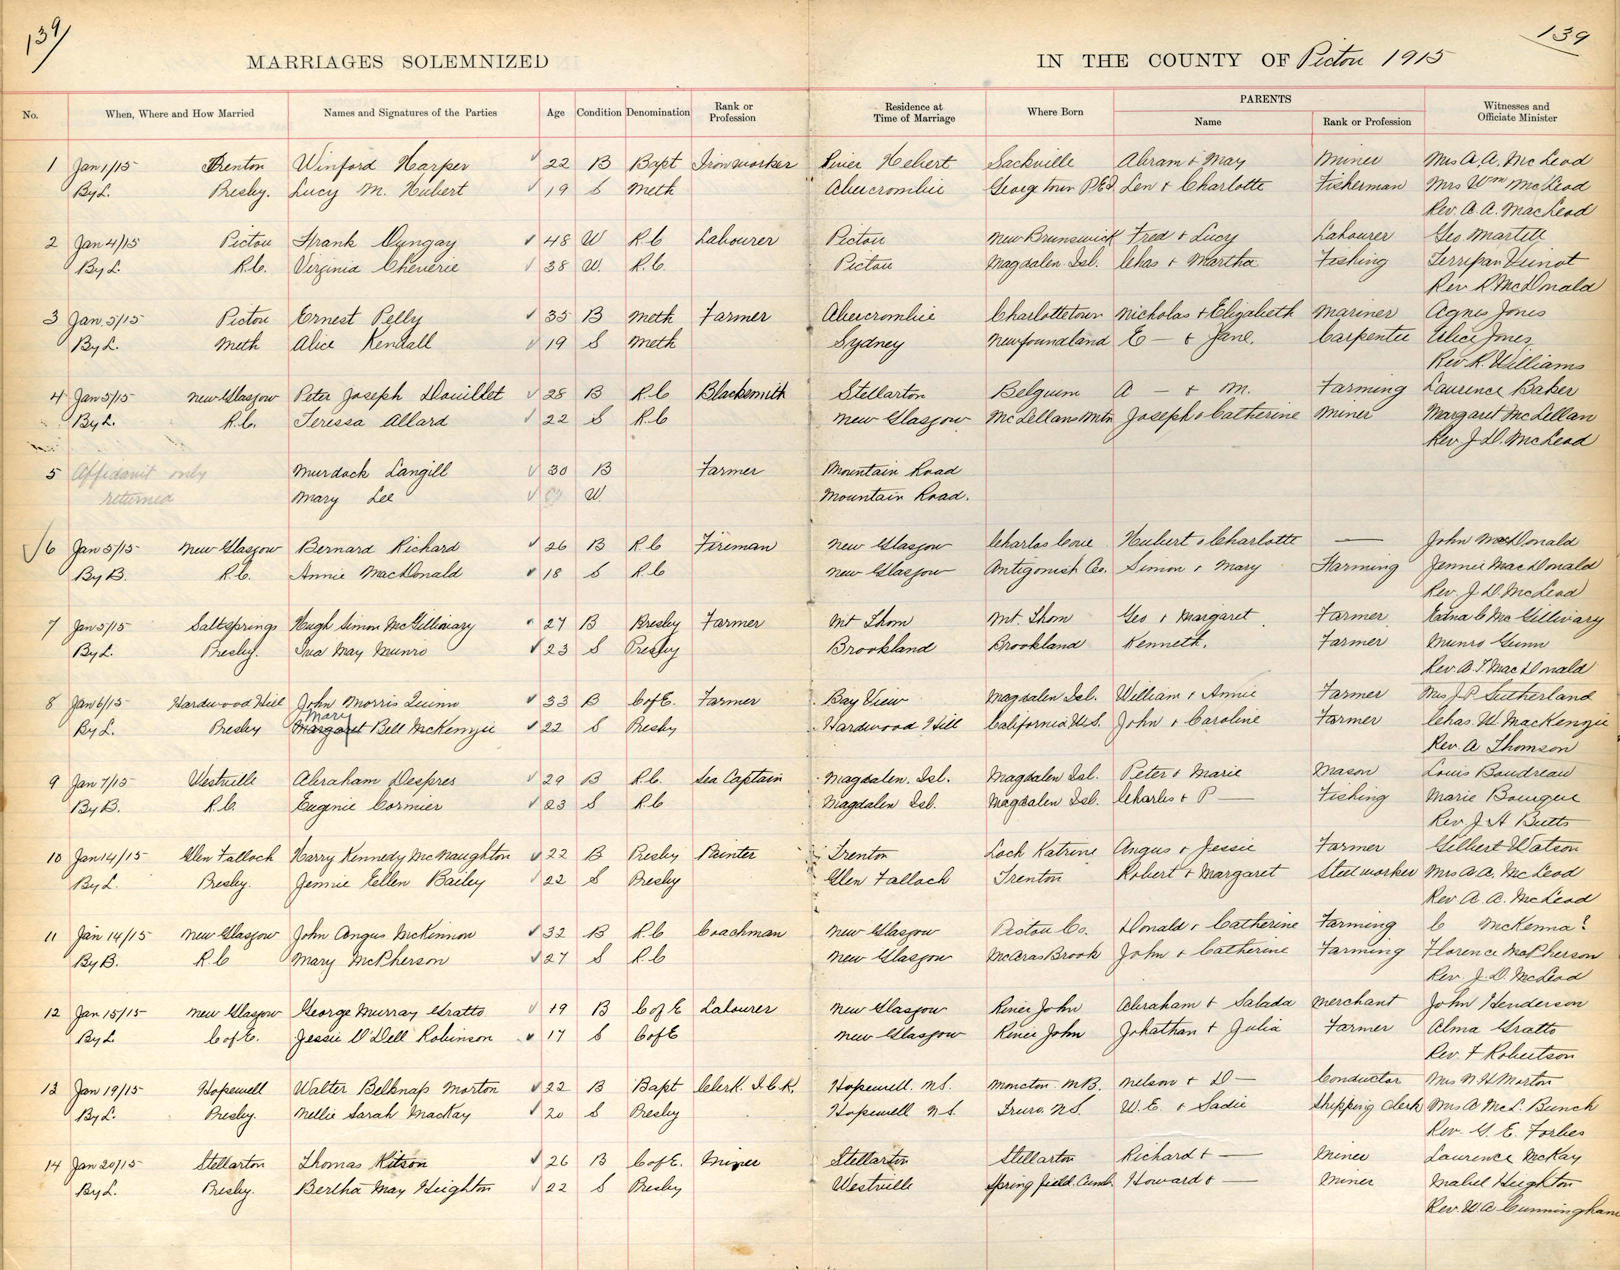 139
139
MARRIAGES SOLEMNIZED IN THE COUNTY OF Pictou 1915
No. When, Where and How Married Names and Signatures of the Parties Age Condition Denomination Rank or Profession Residence at Time of Marriage Where Born PARENTS Name Rank or Profession Witnesses and Officiate Minister
1 Jan 1/15 Trenton Winford Harper 22 B Bapt Ironworker River Hebert Sackville Abram & May Miner Mrs A. A. McLeod
By L. Presby. Lucy M. Hubert 19 S Meth Abercrombie Georgetown P.E.I. Len & Charlotte Fisherman Mrs Wm McLeod
Rev. A. A. MacLeod
2 Jan 4/15 Pictou Frank Dungay 48 W R.C Labourer Pictou New Brunswick Fred & Lucy Labourer Geo Martell
By L. R.C. Virginia Cheverie 38 W. R.C. Pictou Magdalen Isl. Chas & Martha Fishing
Rev R McDonald
3 Jan. 5/15 Pictou Ernest Pelly 35 B Meth Farmer Abercrombie Charlottetown Nicholas & Elizabeth Mariner Agnes Jones
By L. Meth Alice Kendall 19 S Meth Sydney Newfoundland E — & Jane. Carpenter Alice Jones
Rev. R. Williams
4 Jan 5/15 New Glasgow Peter Joseph Douillet 28 B R.C Blacksmith Stellarton Belgium A — & M. Farming Laurence Baker
By L. R.C. Teressa Allard 22 S R.C New Glasgow McLellans Mtn Joseph & Catherine Miner Margaret McLellan
Rev J. D. McLeod
5 Affidavit only Murdock Langill 30 B Farmer Mountain Road
returned Mary Lee W. Mountain Road.
6 Jan 5/15 New Glasgow Bernard Richard 26 B R.C Fireman New Glasgow Charlos Cove Hubert & Charlotte — John MacDonald
By B. R.C. Annie MacDonald 18 S R.C New Glasgow Antigonish Co. Simon & Mary Farming Jennie MacDonald
Rev. J. D. McLeod
7 Jan 5/15 Saltsprings Hugh Simon McGillivary 27 B Presby Farmer Mt Thom Mt. Thom Geo & Margaret Farmer Edna C McGillivary
By L. Presby. Iva May Munro 23 S Presby Brookland Brookland Kenneth. Farmer Munro Gunn
Rev A. T. MacDonald
8 Jan 6/15 Hardwood Hill John Morris Quinn 33 B C of E. Farmer Bay View Magdalen Isl. William & Annie Farmer Mrs J. P. Sutherland
Mary
By L. Presby Margaret Bell McKenzie 22 S Presby Hardwood Hill California U.S. John & Caroline Farmer Chas. W. MacKenzie
Rev. A Thomson
9 Jan 7/15 Westville Abraham Despres 29 B R.C. Sea Captain Magdalen. Isl. Magdalen Isl. Peter & Marie Mason Louis Boudreau
By B. R.C. Eugenie Cormier 23 S R.C Magdalen Isl. Magdalen Isl. Charles & P — Fishing Marie
Rev J. H Butts
10 Jan 14/15 Glen Falloch Harry Kennedy McNaughton 22 B Presby Painter Trenton Loch Katrine Angus & Jessie Farmer Gilbert Watson
By L. Presby. Jennie Ellen Bailey 22 S Presby Glen Falloch Trenton Robert & Margaret Steelworker Mrs A. A. McLeod
Rev A. A. McLeod
11 Jan 14/15 New Glasgow John Angus McKinnon 32 B R.C Coachman New Glasgow Pictou Co. Donald & Catherine Farming C McKenna?
By B. R C Mary McPherson 27 S R.C New Glasgow McAras Brook John & Catherine Farming Florence McPherson
Rev. J. D. McLeod
12 Jan 15/15 New Glasgow George Murray Gratto 19 B C of E Labourer New Glasgow River John Abraham & Salada Merchant John Henderson
By L C of E. Jessie O'Dell Robinson 17 S C of E New Glasgow River John Johathan & Julia Farmer Alma Gratto
Rev. F Robertson
13 Jan 19/15 Hopewell Walter Belknap Morton 22 B Bapt Clerk I.C.R. Hopewell N.S. Moncton N.B. Nelson & D — Conductor Mrs N H Morton
By L. Presby. Nellie Sarah MacKay 20 S Presby Hopewell N.S. Truro. N.S. W. E. & Sadie Shipping Clerk Mrs A McL. Bunch
Rev. G. E. Forbes
14 Jan 20/15 Stellarton Thomas Kitson 26 B C of E. Miner Stellarton Stellarton Richard & — Miner Laurence McKay
By L. Presby. Bertha May Heighton 22 S Presby Westville Springfield. Cumb. Howard & — Miner Mabel Heighton
Rev. W. A. Cunningham